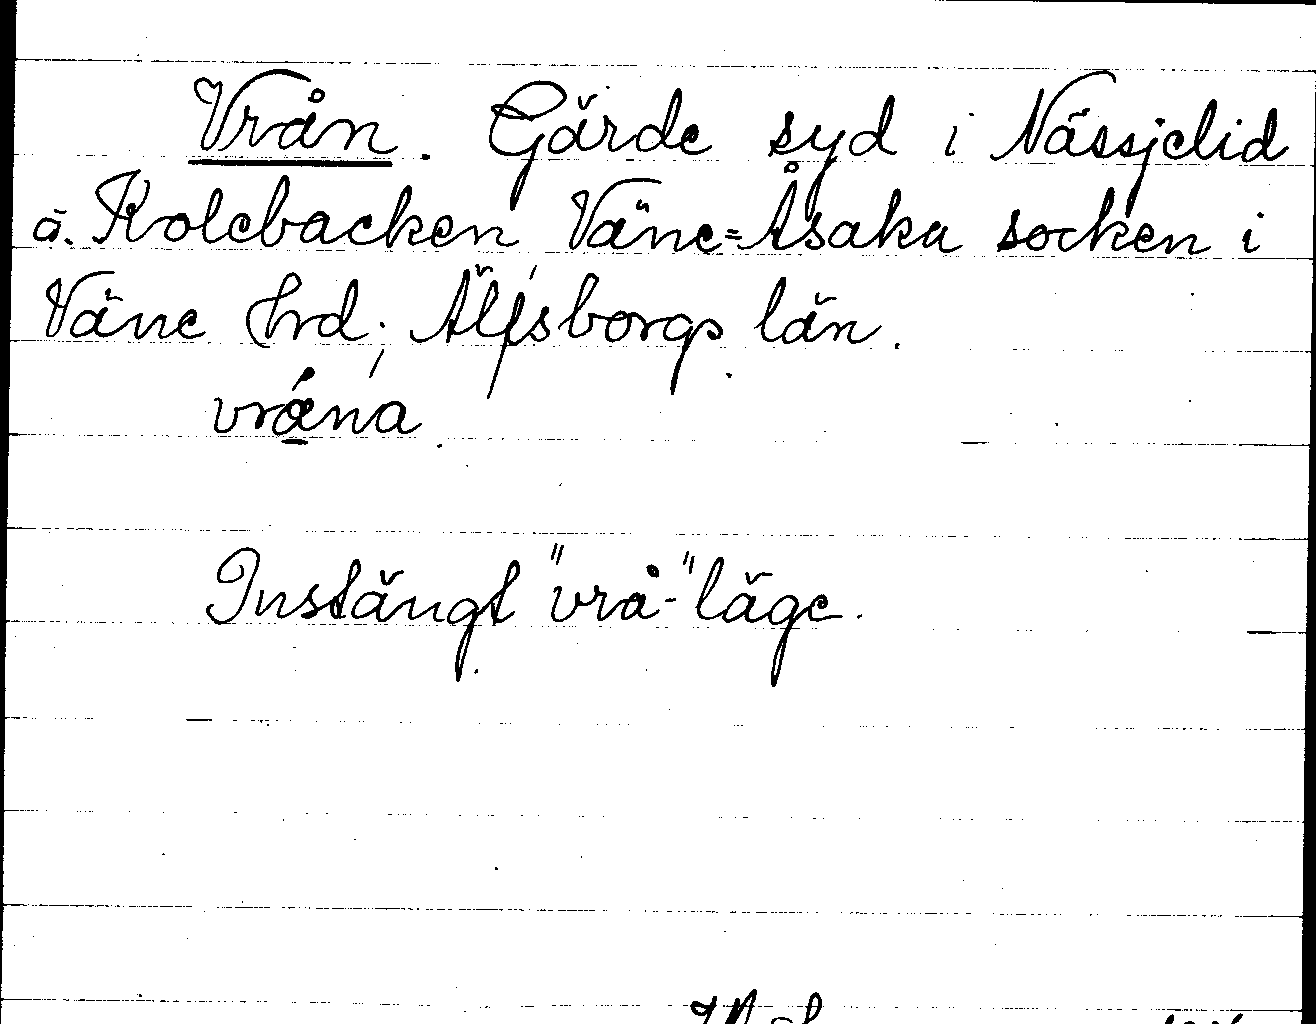 Vrån. Gärde syd i Nässjelid
å. Kolebacken Väne=Åsaka socken i
Väne hrd; Älfsborgs län.
vrána
Instängt "vrå-" läge.